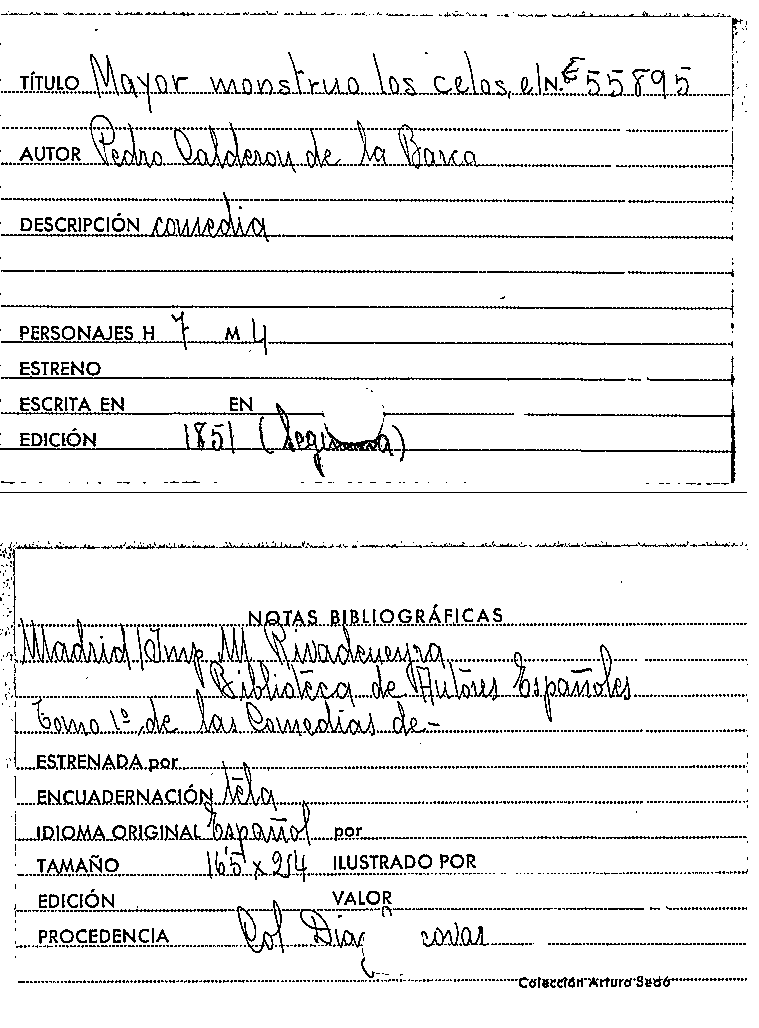 TÍTULO Mayor monstruo los celos, el N.º 55895
AUTOR Pedro Calderon de la Barca
DESCRIPCIÓN comedia
PERSONAJES H 7 M 4
ESTRENO
ESCRITA EN EN
EDICIÓN 1851 (Segunda)
NOTAS BIBLIOGRÁFICAS
Madrid / Imp M Rivadeneyra
Biblioteca de Autores Españoles
Tomo 1º de las Comedias de-
ESTRENADA por
ENCUADERNACIÓN tela
IDIOMA ORIGINAL Español por
TAMAÑO 16'5 x 24 ILUSTRADO POR
EDICIÓN VALOR
PROCEDENCIA Col Diaz
Colección Arturo Sedó